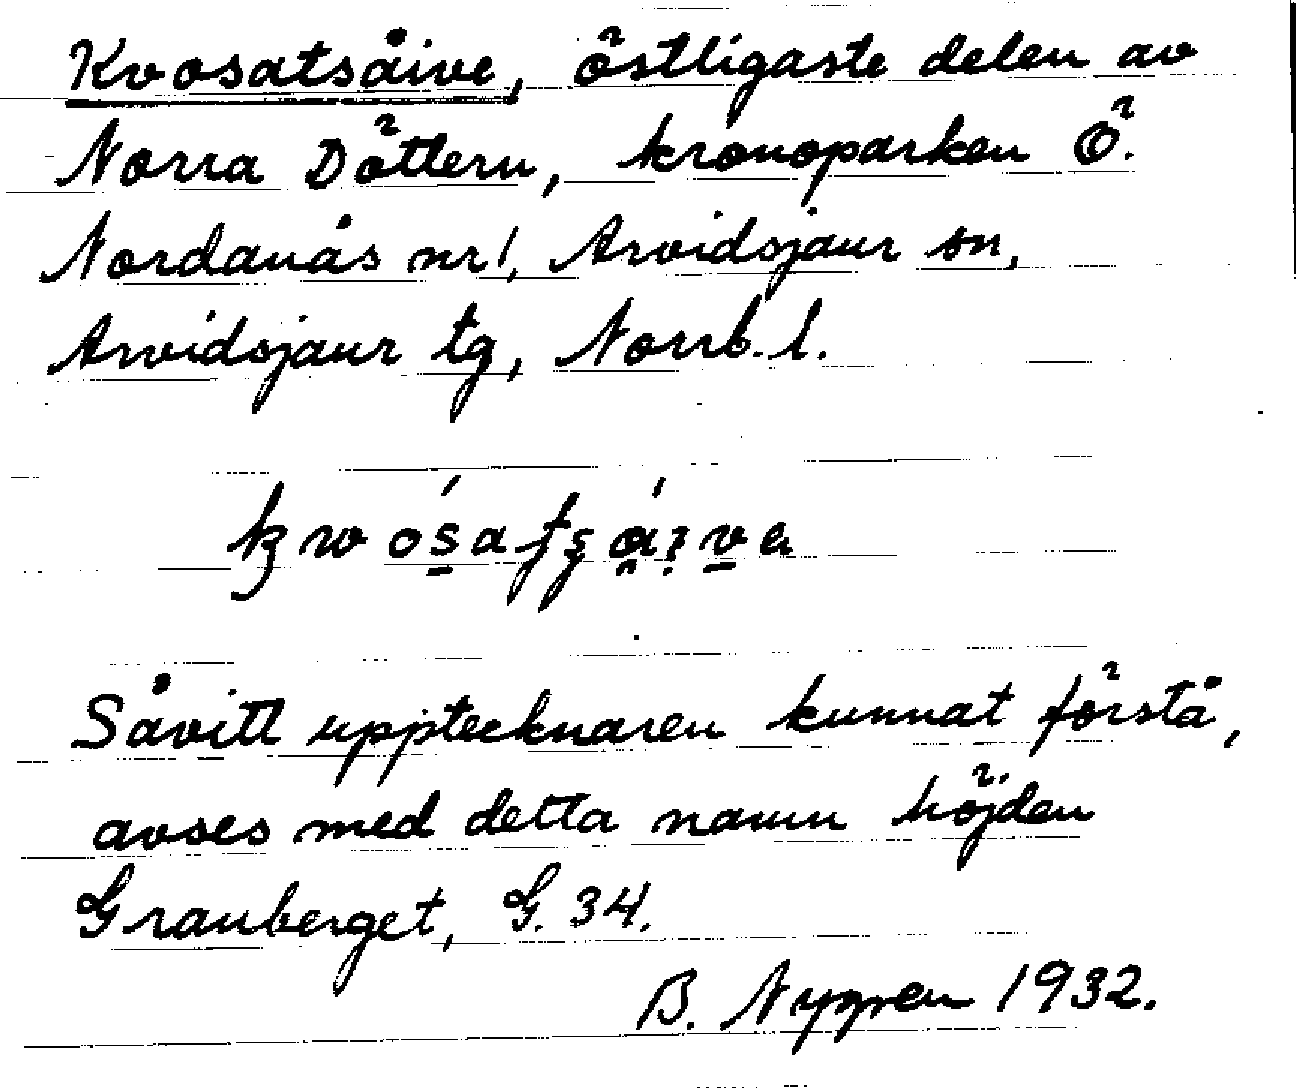 Kvosatsåive, östligaste delen av
Norra Döttern, kronoparken Ö.
Nordanås nr 1, Arvidsjaur sn,
Arvidsjaur tg, Norrb. l.
Såvitt upptecknaren kunnat förstå,
avses med detta namn höjden
Granberget, G. 34.
B. Nygren 1932.